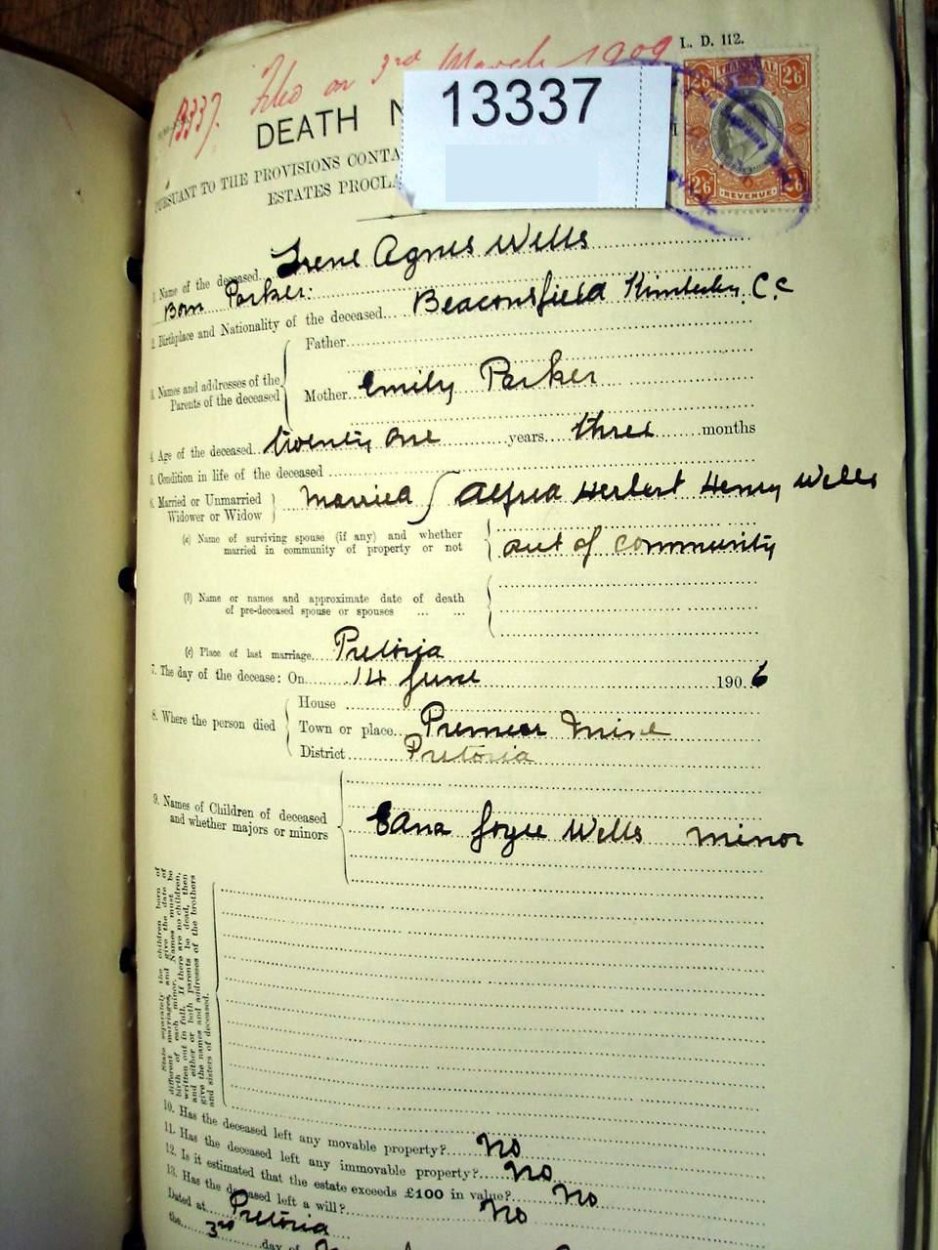 L. D. 112.
13337. Filed on 3rd March 1909
13337
DEATH N
PURSUANT TO THE PROVISIONS CONTA
ESTATES PROCLA
TRANSVAAL
2/6 2/6
2/6 REVENUE 2/6
1. Name of the deceased Irene Agnes Wells
Born Parker.
2. Birthplace and Nationality of the deceased Beaconsfield Kimberley. C.C
3. Names and addresses of the Parents of the deceased
Father
Mother Emily Parker
4. Age of the deceased twenty one years three months
5. Condition in life of the deceased
6. Married or Unmarried Widower or Widow } Married Alfred Herbert Henry Wells
(a) Name of surviving spouse (if any) and whether
married in community of property or not { out of community
(b) Name or names and approximate date of death
of pre-deceased spouse or spouses ... ...
(c) Place of last marriage Pretoria
7. The day of the decease: On 14 June 1906
8. Where the person died
House
Town or place Premier Mine
District Pretoria
9. Names of Children of deceased
and whether majors or minors { Edna Joyce Wells minor
State separately the children born of
different marriages, and give the date of
birth of each minor. Names must be
written out in full. If there are no children,
and either or both parents be dead, then
give the names and addresses of the brothers
and sisters of deceased.
10. Has the deceased left any movable property? No
11. Has the deceased left any immovable property? No
12. Is it estimated that the estate exceeds £100 in value? No
13. Has the deceased left a will? No
Dated at Pretoria
the 3rd day of